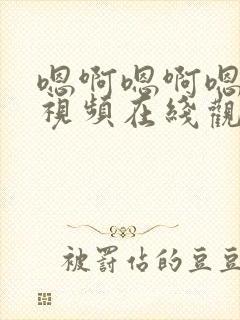 嗯啊嗯啊嗯
視頻在綫觀
被罰佔的豆豆